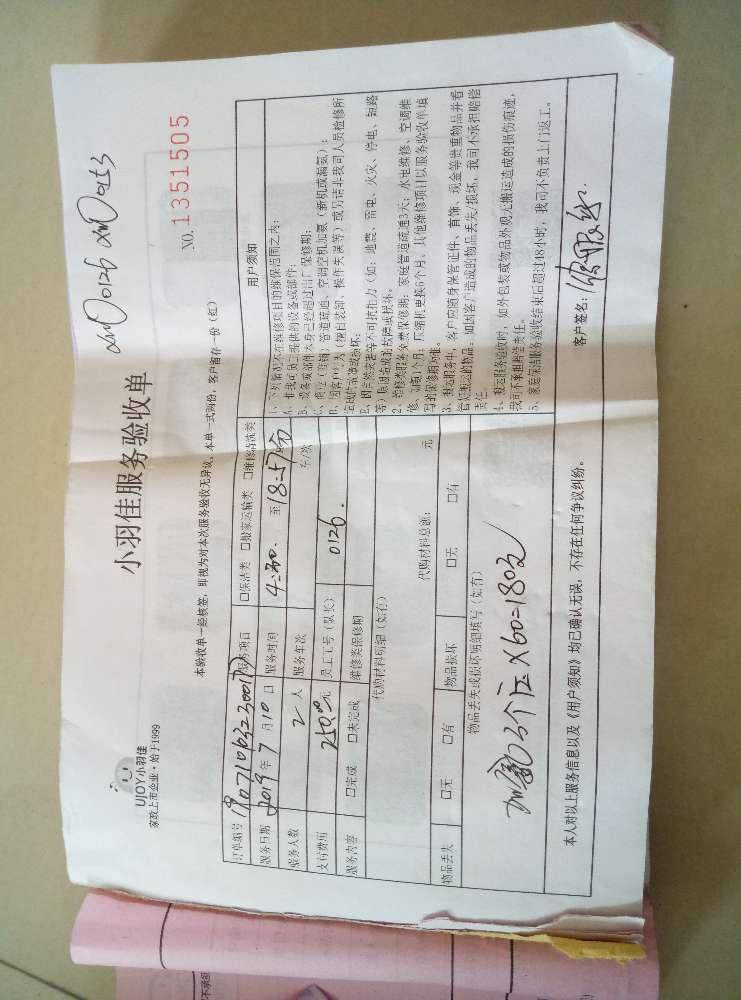 UJOY小羽佳
家政上市企业·始于1999
小羽佳服务验收单
xm0126 xm0153
NO.1351505
本验收单一经核签，即视为对本次服务验收无异议。本单一式两份，客户留存一份（红）
订单编号
服务项目 □保洁类 □搬家运输类 □维修清洗类
服务日期 2019年7月10日
服务时间 4:30. 至 18:57分
服务人数 2人
服务车次 车/次
支付费用 250.00元
员工工号（队长） 0126.
服务内容 □完成 □未完成
维修类保修期
代购材料明细（如有）
代购材料总额： 元
物品丢失 □无 □有
物品损坏 □无 □有
物品丢失或损坏明细填写（如有）
3个 X60=180元
用户须知
1、下列情况不在维修项目的维保范围之内：
A、非我司员工提供的设备或部件；
B、设备或部件本身已经超过出厂保修期；
管道疏通、空调空机加氨（新机或漏氨）；
（擅自装卸、操作失误等）或另请非我司人员检修所
造成的故障或损坏；
E、因自然灾害等不可抗拒力（如：地震、雷电、火灾、停电、短路
等）原因造成的故障或损坏。
2、维修类服务免费保修期：家庭管道疏通3天；水电维修、空调维
修、加氨1个月，压缩机更换6个月，其他维修项目以服务验收单填
写的保修期为准。
3、搬运服务中，客户应随身保管证件、首饰、现金等贵重物品并看
管好搬运的物品。如因客户造成的物品丢失/损坏，我司不承担赔偿
责任。
4、搬运服务验收时，如外包装或物品外观无搬运造成的损伤痕迹，
我司不承担赔偿责任。
5、家庭保洁服务验收结束后超过48小时，我司不负责上门返工。
本人对以上服务信息以及《用户须知》均已确认无误，不存在任何争议纠纷。
客户签名：